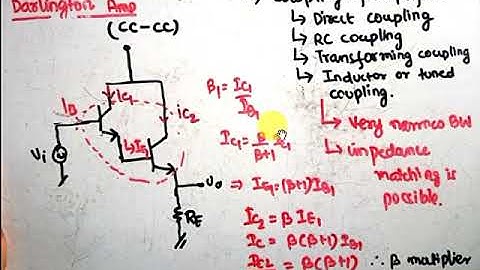 Darlington Amp
(CC-CC)
↳ Direct coupling
↳ RC coupling
↳ Transforming coupling
↳ Inductor or tuned
coupling.
↳ Very narrow BW
↳ impedance
matching is
possible.
IB
IC1
IC2
IE1
Vi
Vo
RE
β1 = IC1
IB1
IC1 = β
β+1
⇒ IE1 = (β+1) IB1
IC2 = β IE1
IC = β(β+1) IB1
IC2 = β(β+1) ∴ β multiplier